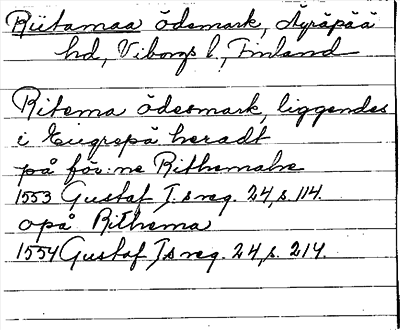 Riitamaa ödemark, Äyräpää
hd, Viborgs l., Finland
Ritema ödesmark, liggendes
i Eugrepä heradt
på för:ne Rithemahe
1553 Gustaf I:s reg. 24, s. 114.
opå Rithema
1554 Gustaf I:s reg. 24, s. 214.